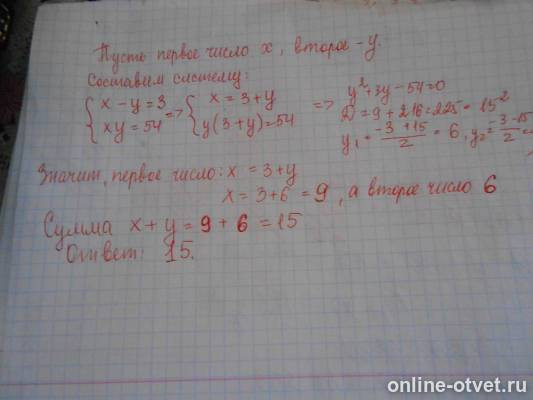 Пусть первое число x, второе - y.
Составим систему:
{ x - y = 3 => { x = 3 + y => y² + 3y - 54 = 0
{ xy = 54 { y(3 + y) = 54 D = 9 + 216 = 225 = 15²
y₁ = (-3 + 15)/2 = 6, y₂ = (-3 - 15)/2 =
Значит, первое число: x = 3 + y
x = 3 + 6 = 9, а второе число 6
Сумма x + y = 9 + 6 = 15
Ответ: 15.
online-otvet.ru